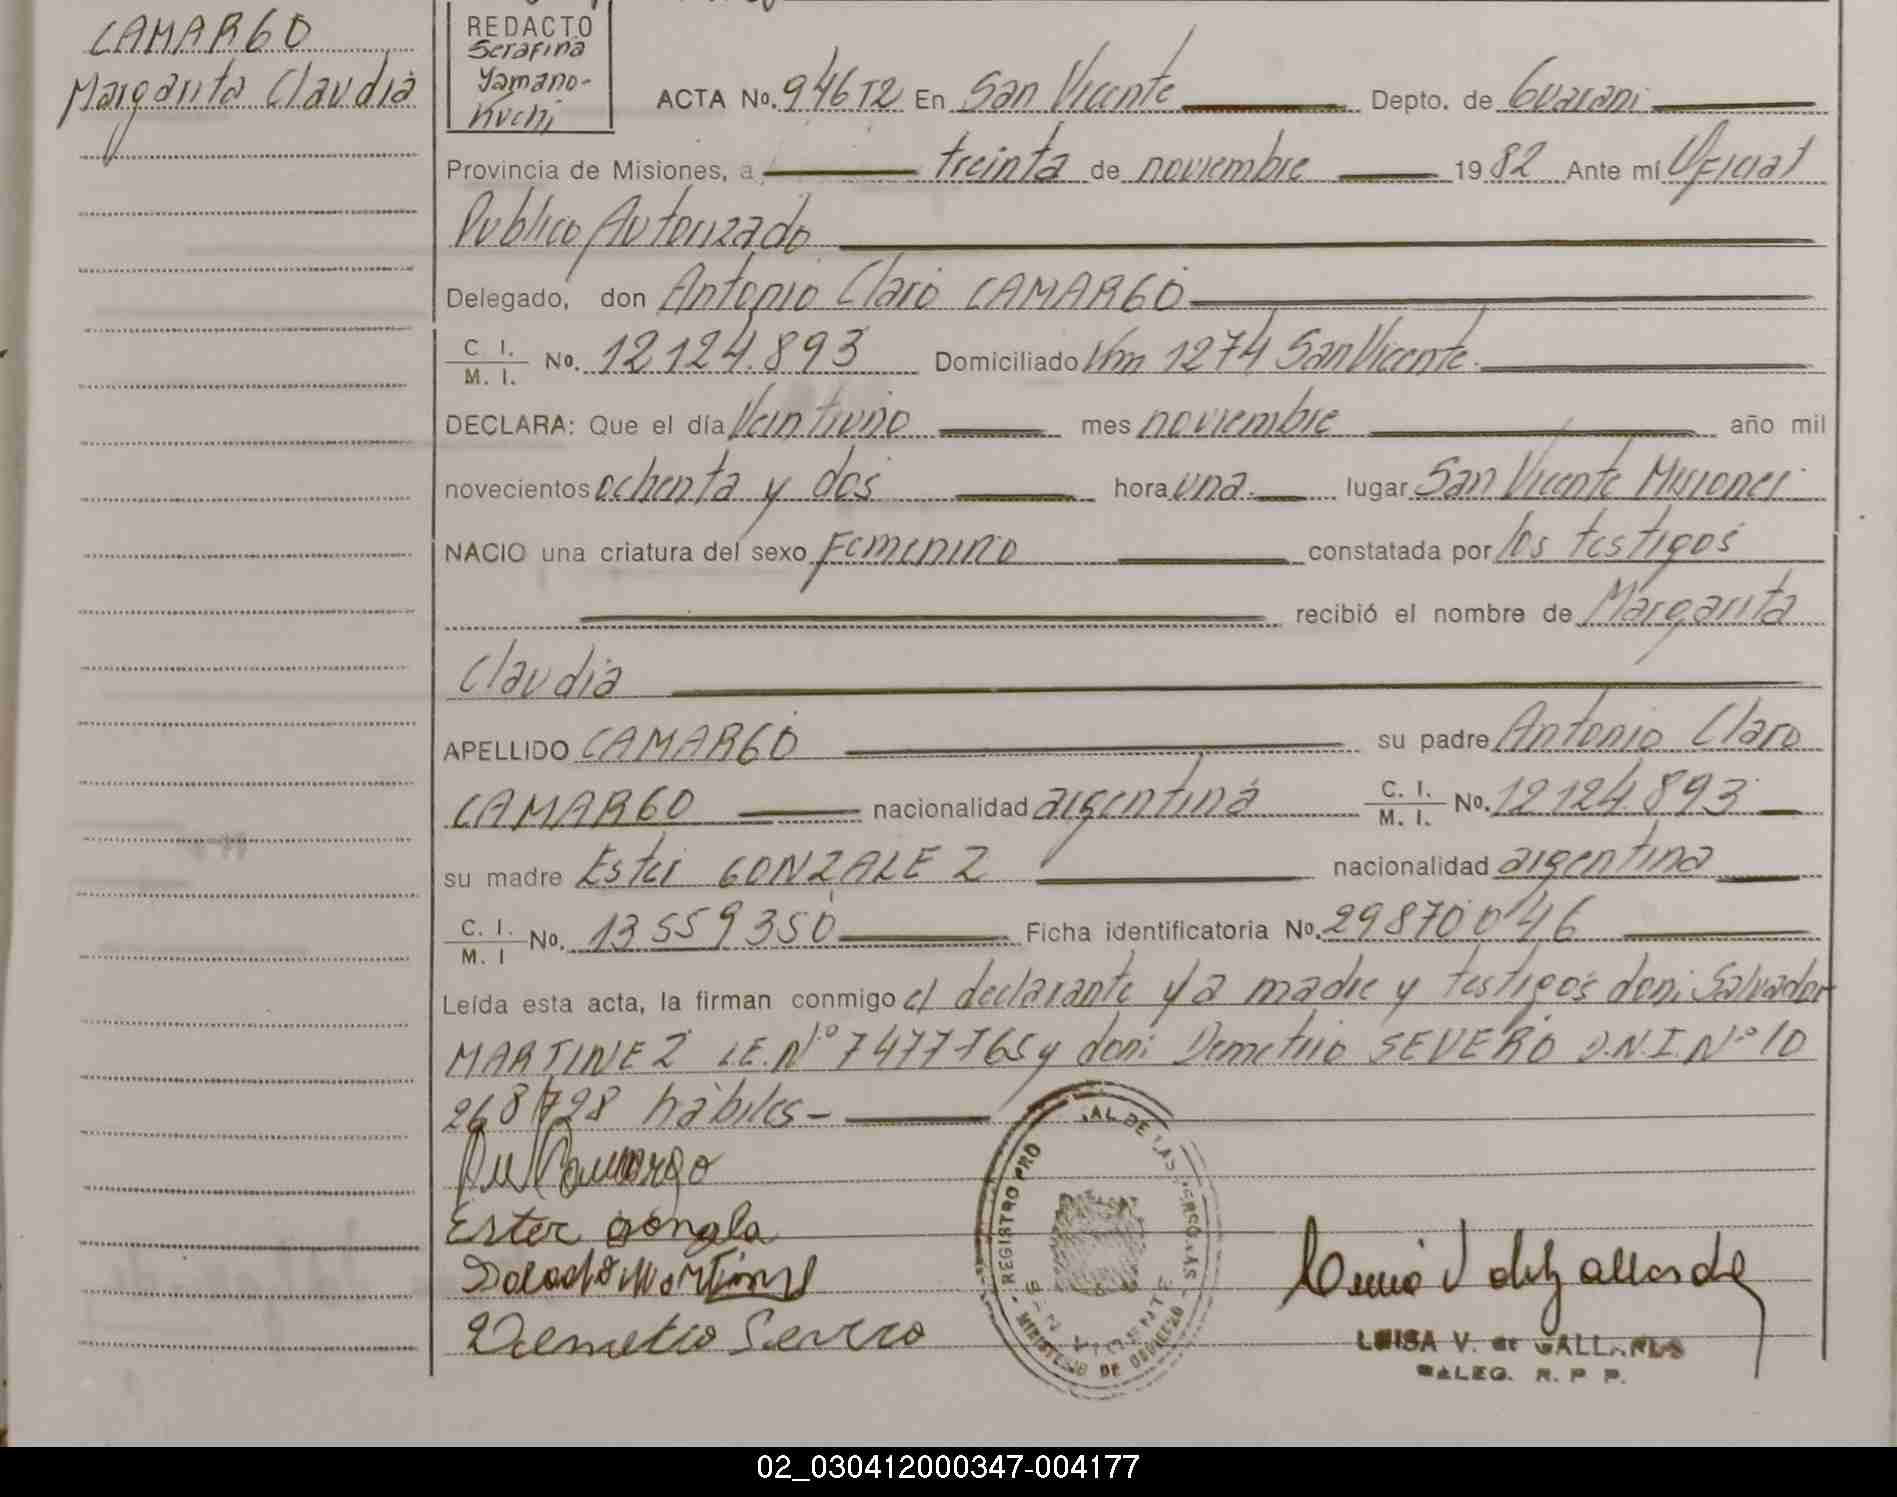 CAMARGO
Margarita Claudia
REDACTO
Serafina
Yamano-
Kuchi
ACTA No. 946 T2 En San Vicente Depto. de Guarani
Provincia de Misiones, a treinta de noviembre 1982 Ante mí Oficial
Publico Autorizado
Delegado, don Antonio Claro CAMARGO
C. I. / M. I. No. 12124.893 Domiciliado Km 1274 San Vicente.
DECLARA: Que el día Veintiuno mes noviembre año mil
novecientos ochenta y dos hora una. lugar San Vicente Misiones
NACIO una criatura del sexo Femenino constatada por los testigos
recibió el nombre de Margarita
Claudia
APELLIDO CAMARGO su padre Antonio Claro
CAMARGO nacionalidad argentina C. I. / M. I. No. 12124.893
su madre Ester GONZALEZ nacionalidad argentina
C. I. / M. I No. 13559350 Ficha identificatoria No. 29870046
Leída esta acta, la firman conmigo el declarante y la madre y testigos don: Salvador
MARTINEZ L.E. Nº 7477765 y don: Demetrio SEVERO D.N.I. Nº 10
268728 hábiles-
Camargo
Ester gonzla
Martinez
Demetrio Severo
REGISTRO PRO AL DE LAS PERSONAS
SAN VICENTE
MINISTERIO DE GOBIERNO
LUISA V. de GALLARDO
DELEG. R. P. P.
02_030412000347-004177